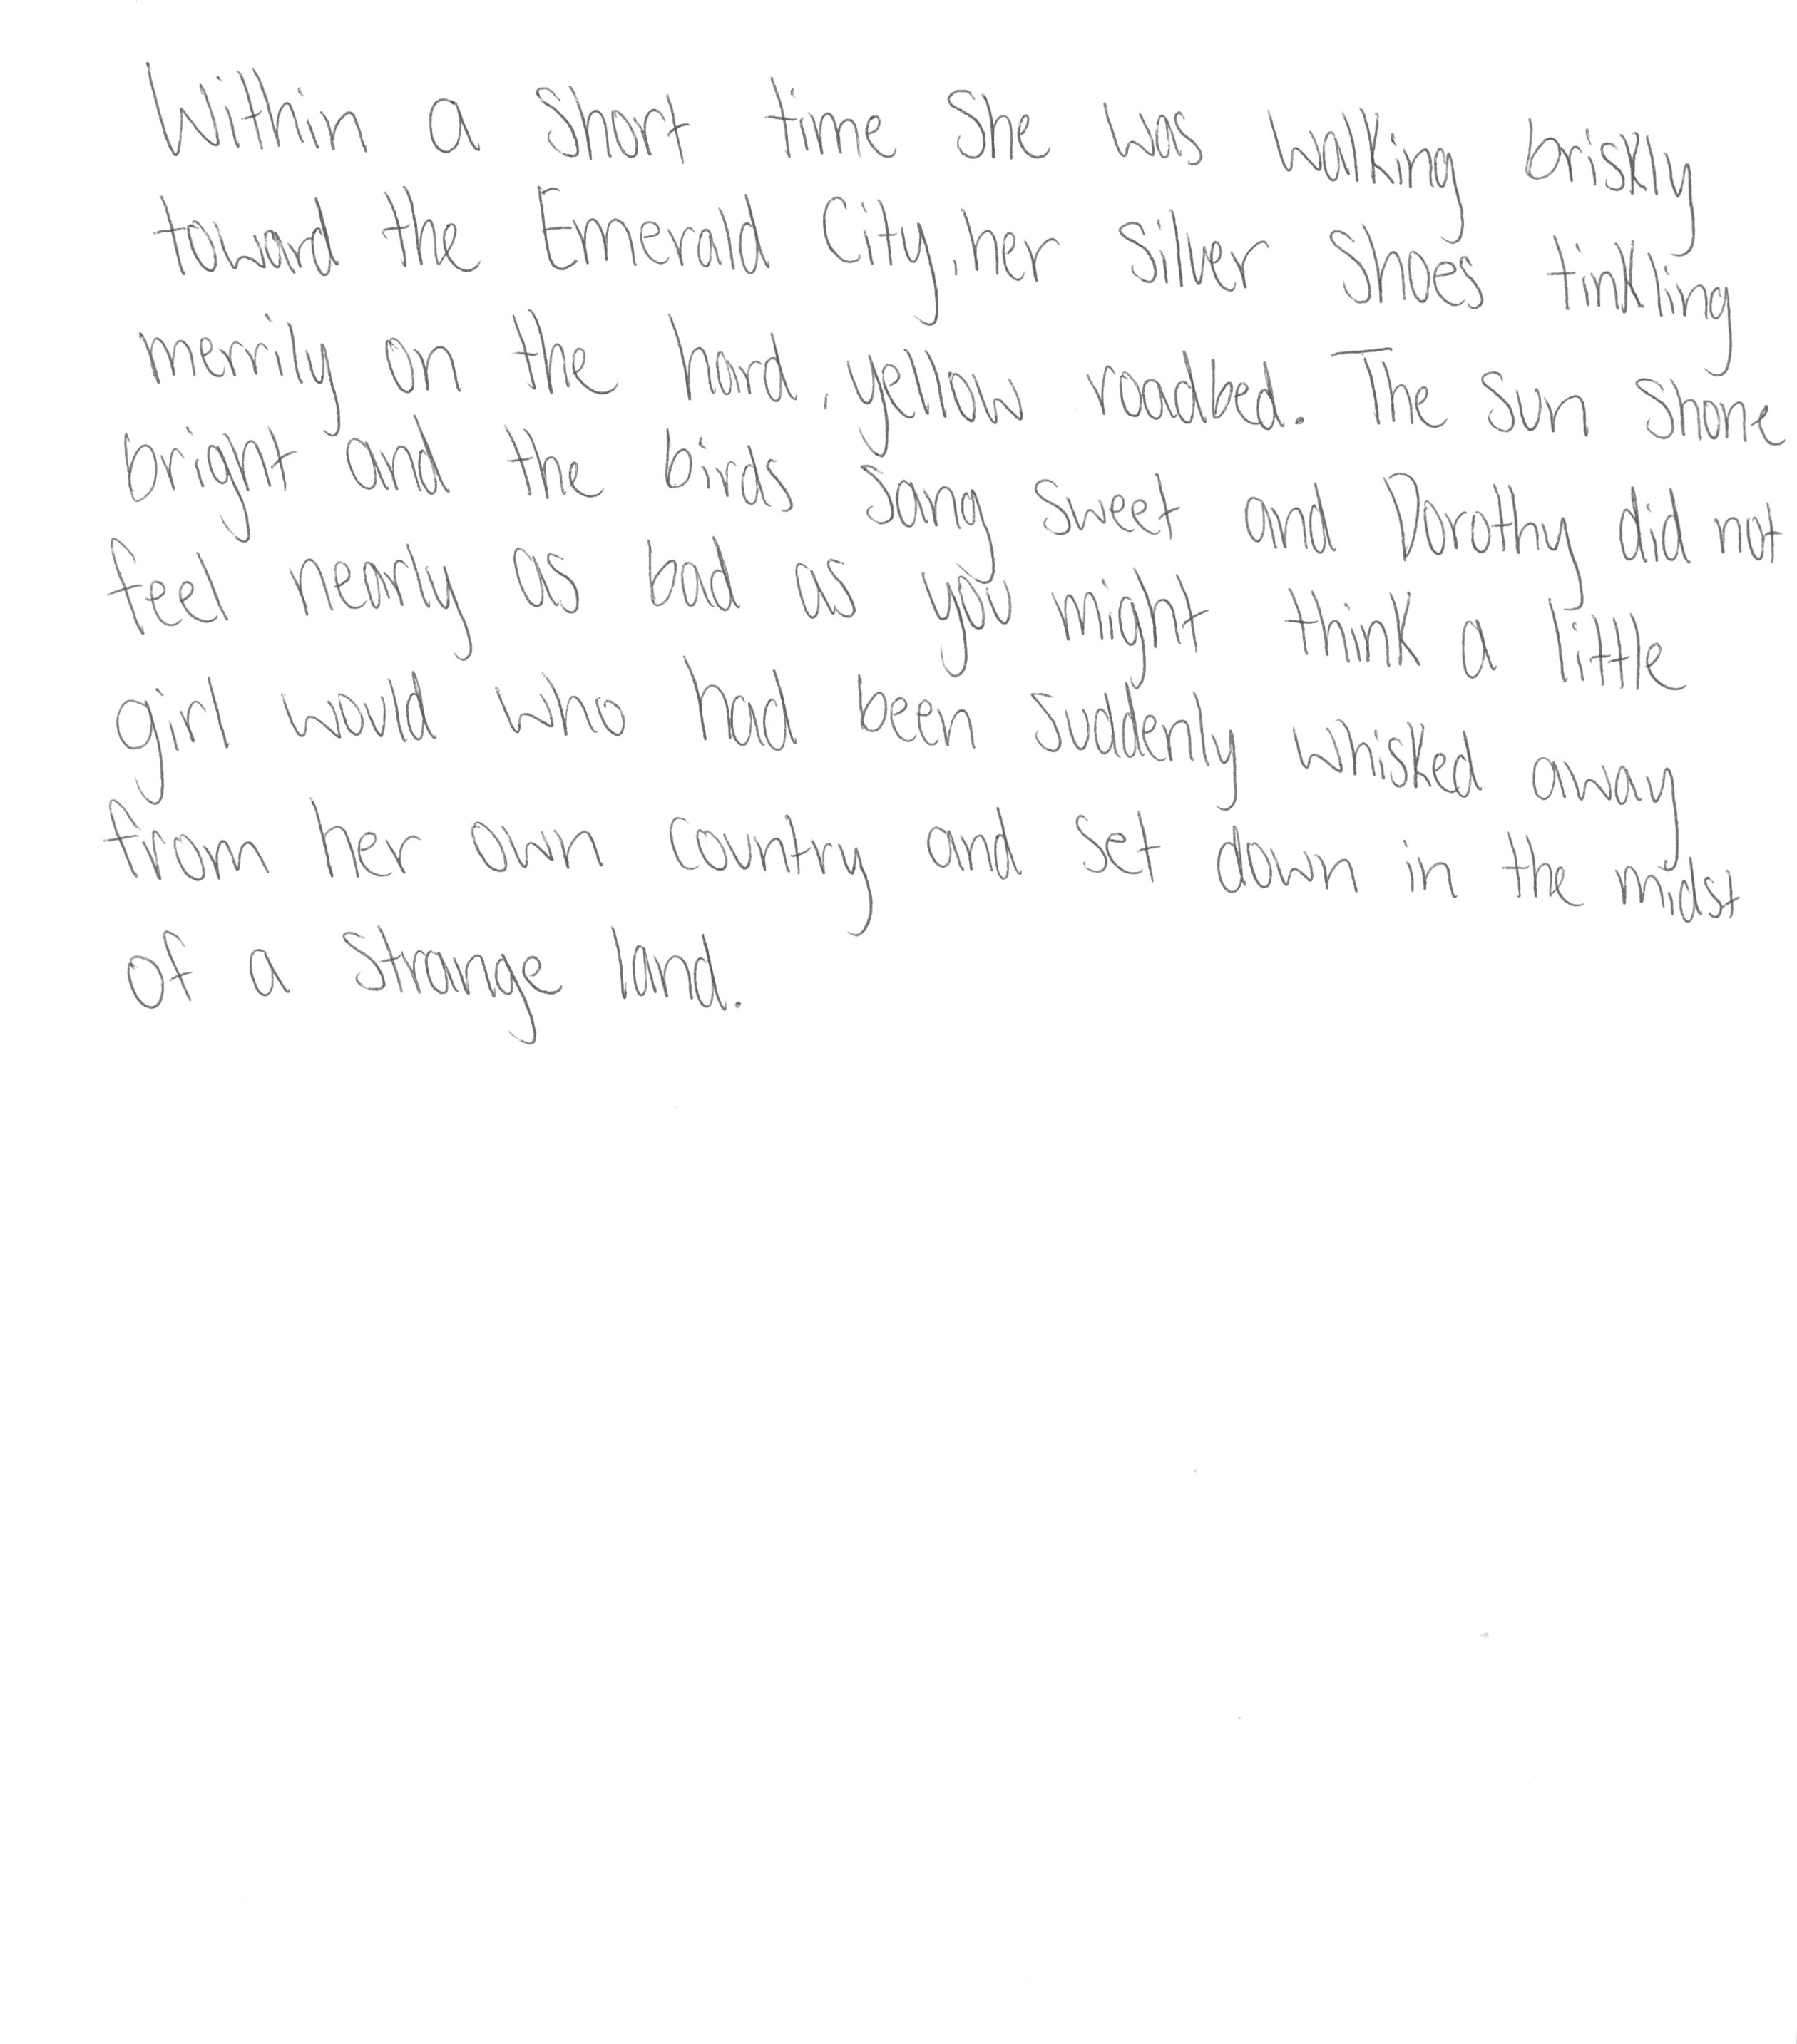 Within a short time she was walking briskly
toward the Emerald City, her silver shoes tinkling
merrily on the hard, yellow roadbed. The sun shone
bright and the birds sang sweet and Dorothy did not
feel nearly as bad as you might think a little
girl would who had been suddenly whisked away
from her own country and set down in the midst
of a strange land.